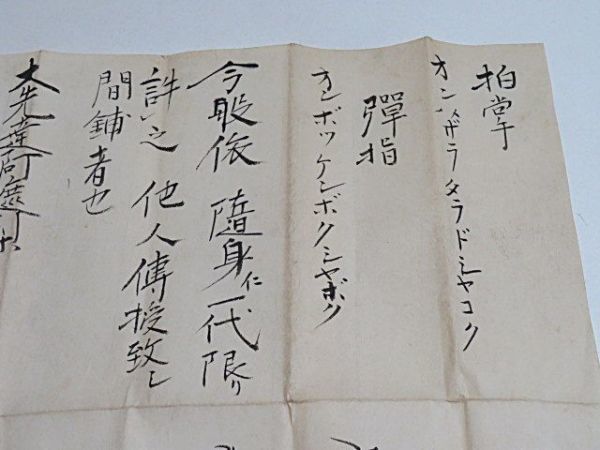 拍掌
オンバザラタラドシヤコク
彈指
オンボツケンボクシヤボク
今般依隨身仁一代限リ
許之他人傳授致シ
間鋪者也
大先達